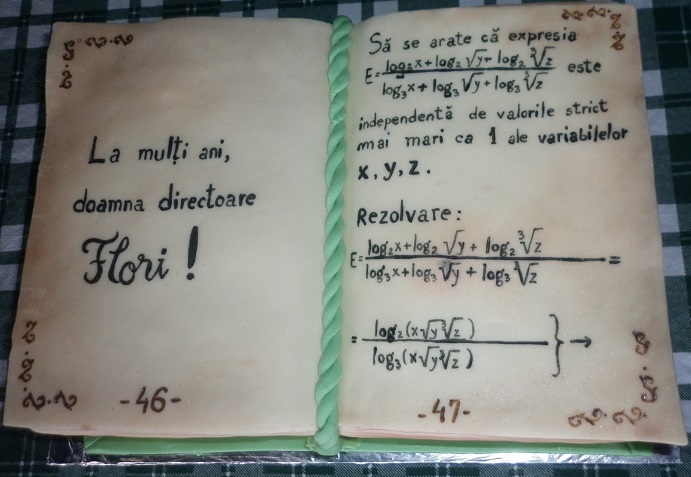 La mulți ani,
doamna directoare
Flori!
-46-
Să se arate că expresia
E=(log₂x+log₂√y+log₂∛z)/(log₃x+log₃√y+log₃∛z) este
independentă de valorile strict
mai mari ca 1 ale variabilelor
x, y, z.
Rezolvare:
E=(log₂x+log₂√y+log₂∛z)/(log₃x+log₃√y+log₃∛z)=
=log₂(x√y∛z)/log₃(x√y∛z)}→
-47-